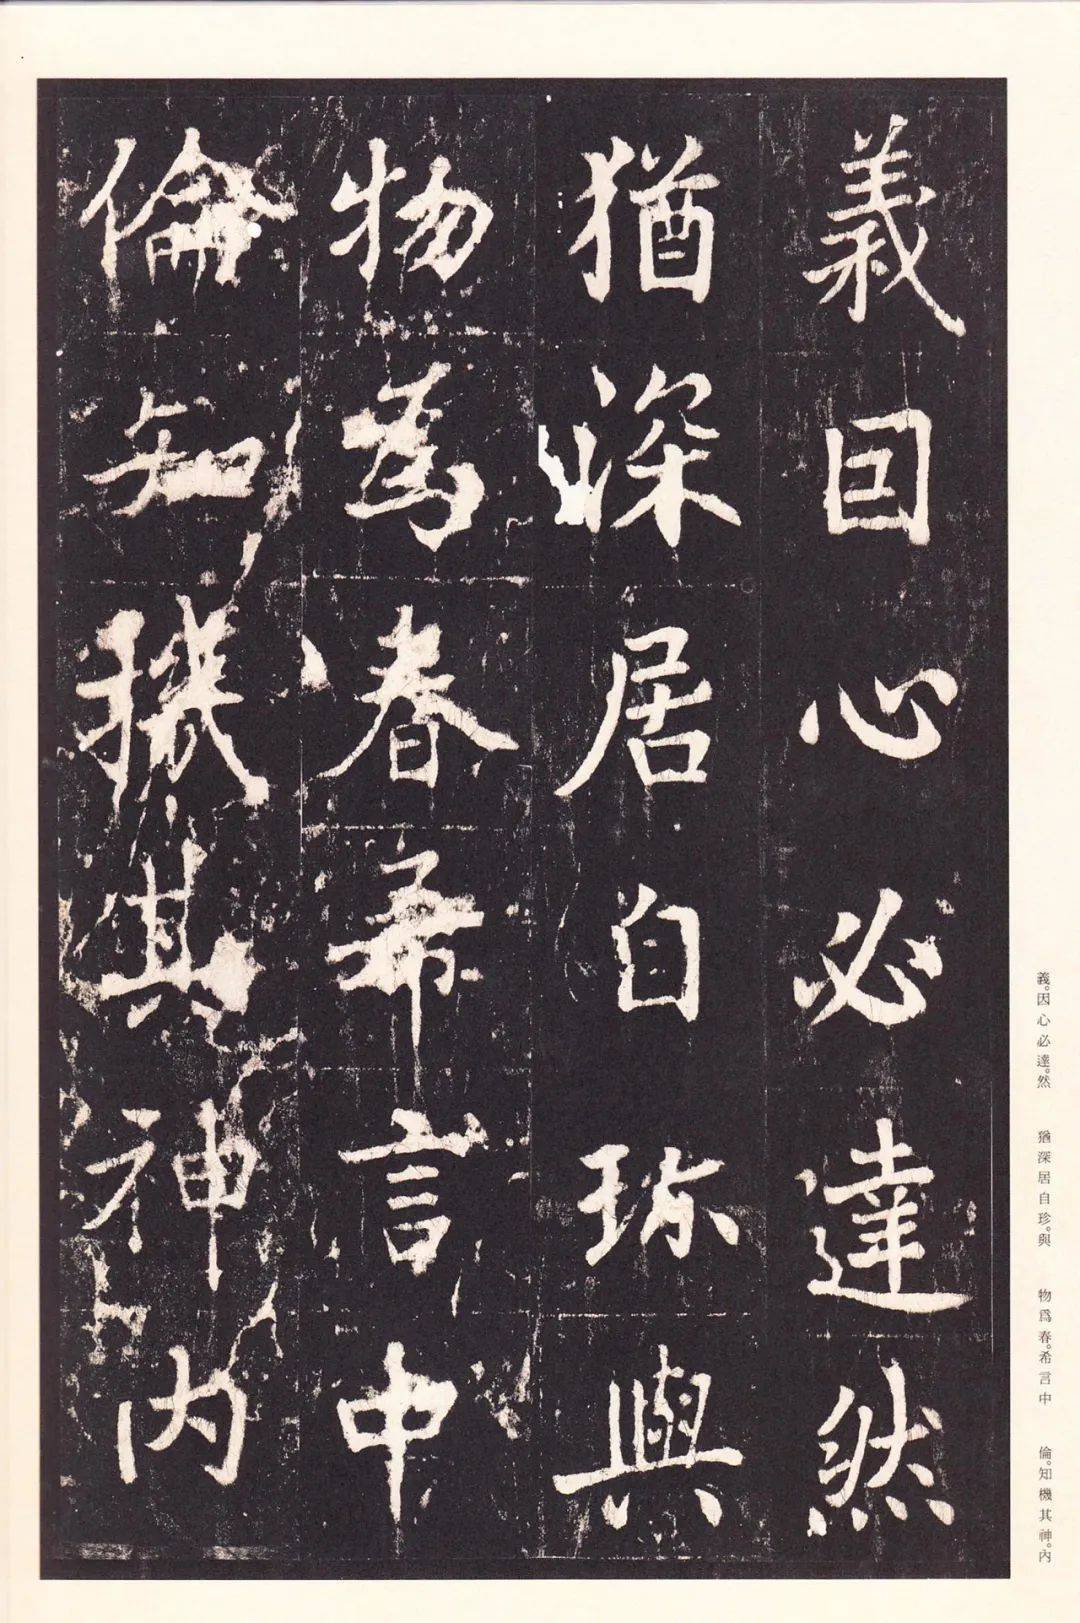 義因心必達然
猶深居自珎與
物為春希言中
倫知機其神內
義。因心必達。然
猶深居自珍。與
物爲春。希言中
倫。知機其神。內